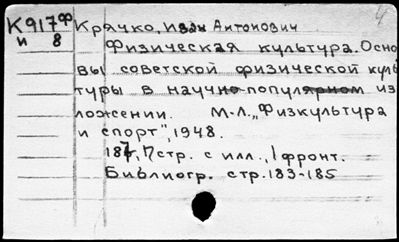 К917ф Крячко, Иван Антонович
и 8 Физическая культура. Осно
вы советской физической куль
туры в научно-популярном из
ложении. М-Л., "Физкультура
и спорт", 1948.
187, [7] стр. с илл., 1 фронт.
Библиогр. стр. 183-185